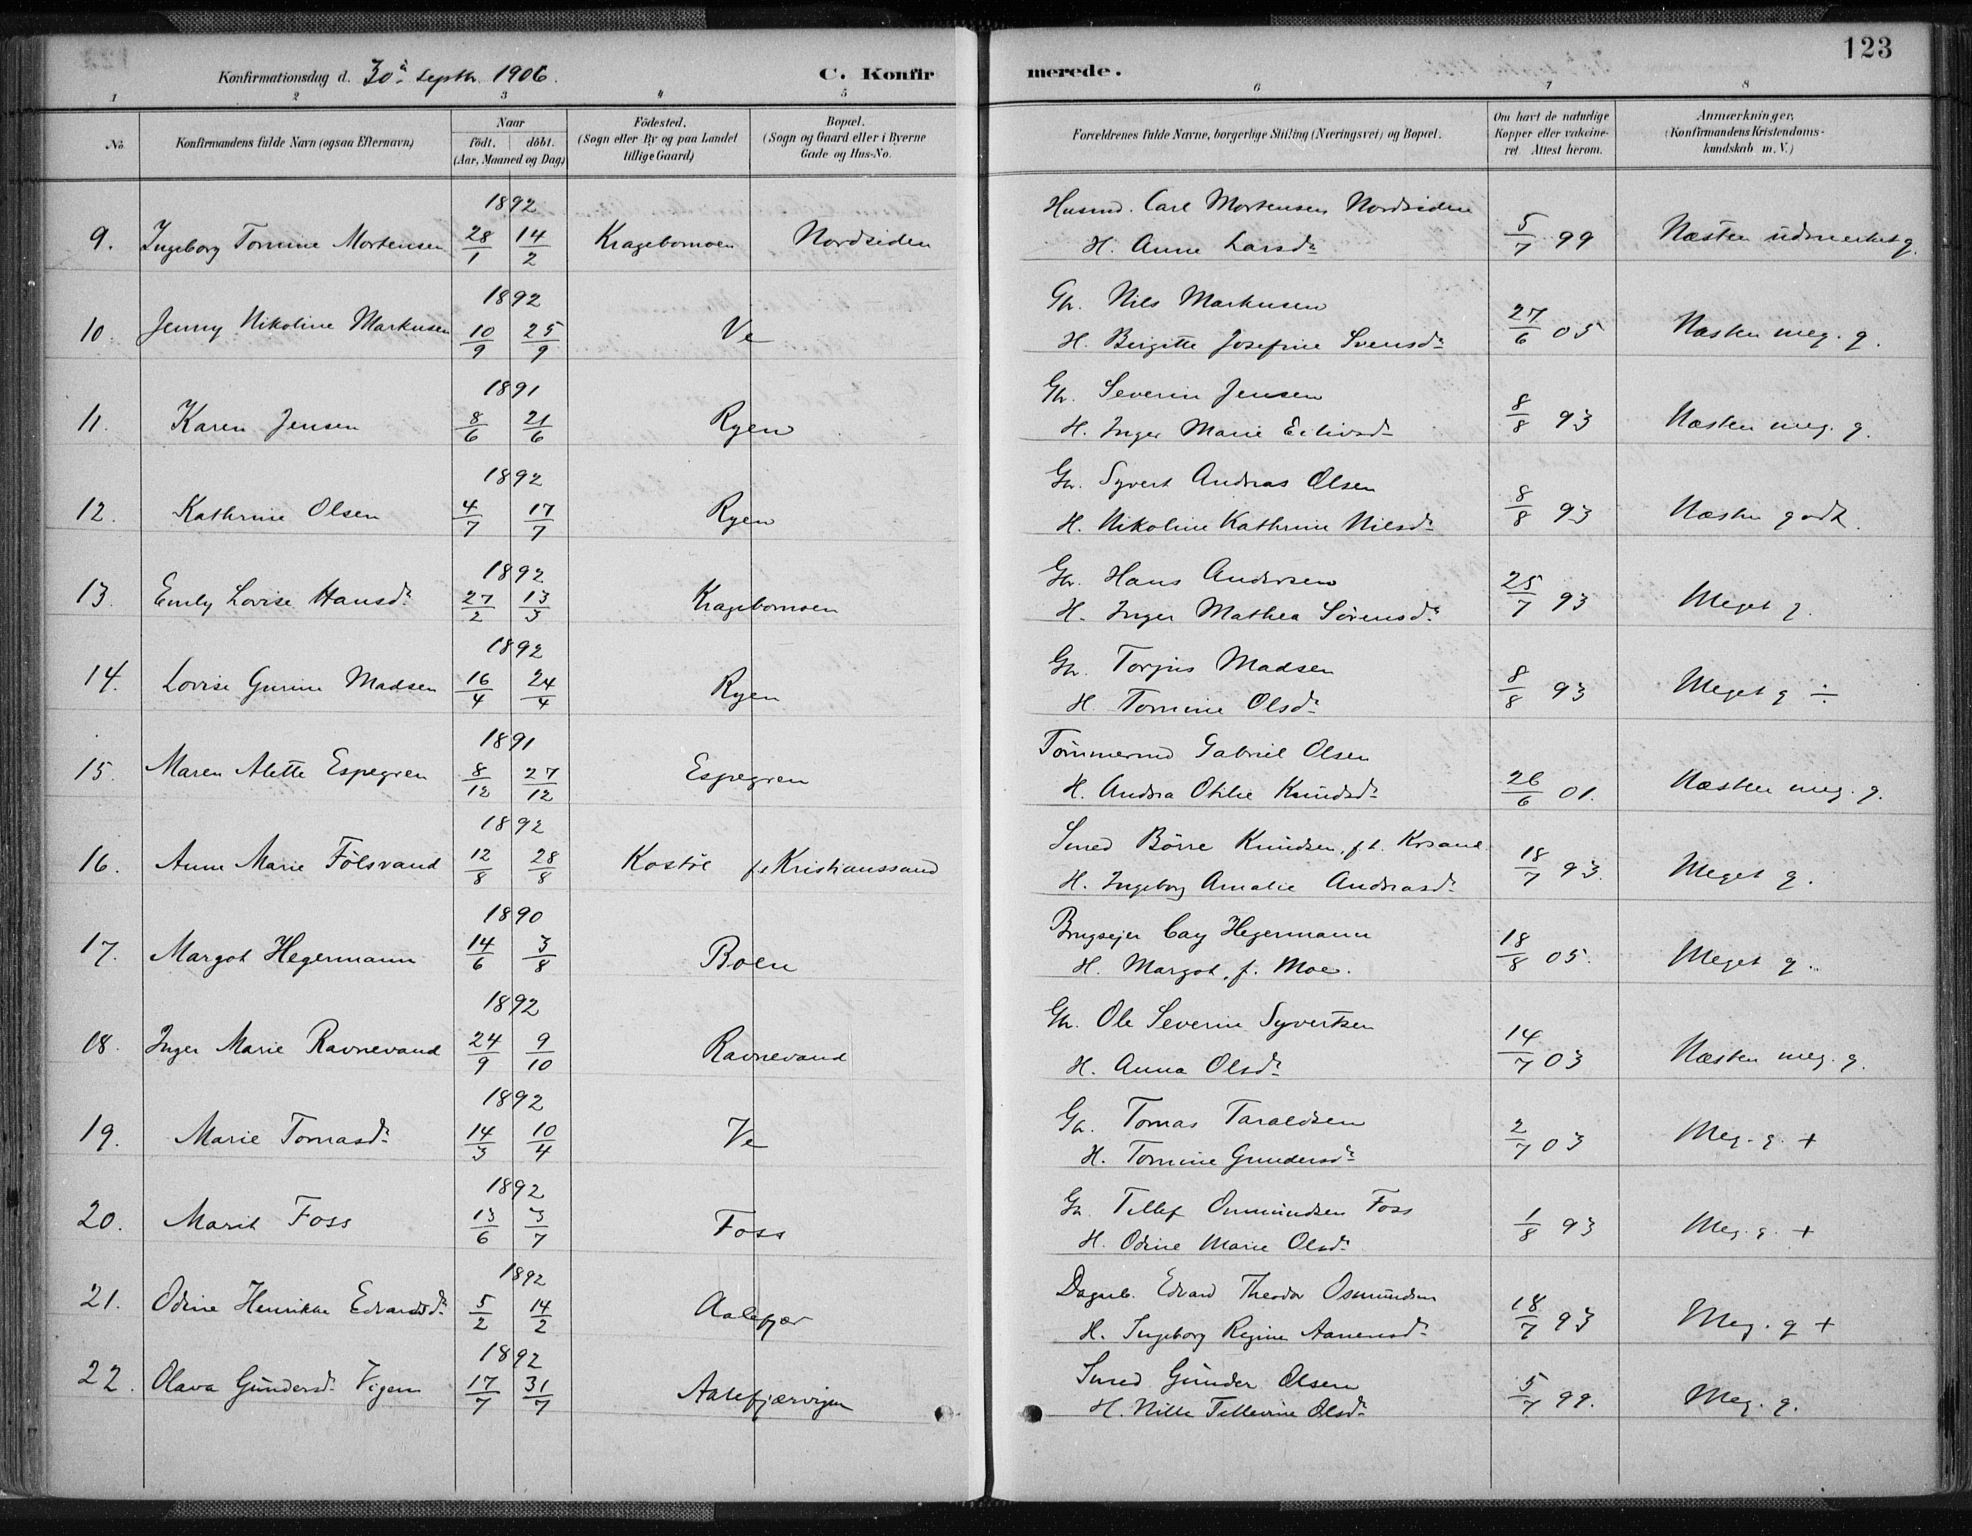 123
Konfirmationsdag d. 30te Septbr. 1906.
C. Konfirmerede.
1 2 3 4 5 6 7 8
No.
Konfirmandens fulde Navn (ogsaa Efternavn)
Naar
födt. döbt.
(Aar, Maaned og Dag)
Födested.
(Sogn eller By og paa Landet tillige Gaard)
Bopæl.
(Sogn og Gaard eller i Byerne Gade og Hus-No.
Forældrenes fulde Navne, borgerlige Stilling (Næringsvei) og Bopæl.
Om havt de naturlige Kopper eller vakcineret. Attest herom.
Anmærkninger.
(Konfirmandens Kristendomskundskab m. V.)
1892
9. Ingeborg Tomine Mortensen 28/1 14/2 Kragebomoen Nordsiden
Husmd. Carl Mortensen Nordsiden
H. Anne Larsdr 5/7 99 Næsten udmerket g.
1892
10. Jenny Nikoline Markusen 10/9 25/9 Ve
Gbr. Nils Markusen
H. Birgitte Josefine Svensdr 27/6 05 Næsten meg. g.
1891
11. Karen Jensen 8/6 21/6 Ryen
Gbr. Severin Jensen
H. Inger Marie Eilivsdr 8/8 93 Næsten meg. g.
1892
12. Kathrine Olsen 4/7 17/7 Ryen
Gbr. Syvert Andreas Olsen
H. Nikoline Kathrine Nilsdr 8/8 93 Næsten godt.
1892
13. Emly Lovise Hansdr 27/2 13/3 Kragebomoen
Gbr. Hans Andersen
H. Inger Mathea Sörensdr 25/7 93 Meget g.
1892
14. Lovise Gurine Madsen 16/4 24/4 Ryen
Gbr. Torjus Madsen
H. Tomine Olsdr 8/8 93 Meget g ÷
1891
15. Maren Alette Espegren 8/12 27/12 Espegren
Tömmermd Gabriel Olsen
H. Andrea Otilie Knudsdr 26/6 01. Næsten meg. g.
1892
16. Anne Marie Fölsvand 12/8 28/8 Kostöl f.t. Kristianssand
Smed Börre Knudsen, f.t. Krsand.
H. Ingeborg Amalie Andreasdr 18/7 93. Meget g.
1890
17. Margot Hegermann 14/6 3/8 Boen
Brugsejer Cay Hegermann
H. Margot, f. Moe. 18/8 05. Meget g.
1892
18. Inger Marie Ravnevand 24/9 9/10 Ravnevand
Gbr. Ole Severin Syvertsen
H. Anna Olsdr 14/7 03 Næsten meg. g.
1892
19. Marie Tomasdr 14/3 10/4 Ve
Gbr. Tomas Taraldsen
H. Tomine Gundersdr 2/7 03 Meg. g. +
1892
20. Marit Foss 13/6 3/7 Foss
Gbr. Tellef Osmundsen Foss
H. Odine Marie Olsdr 1/8 93 Meg. g. +
1892
21. Odine Henrikke Edvardsdr 5/2 14/2 Aalefjær
Dagarb. Edvard Theodor Osmundsen
H. Ingeborg Regine Aanensdr 18/7 93 Meg. g +
1892
22. Olava Gundersdr Vigen 17/7 31/7 Aalefjærvigen
Smed Gunder Olsen
H. Nille Tellevine Olsdr 5/7 99. Meg. g.